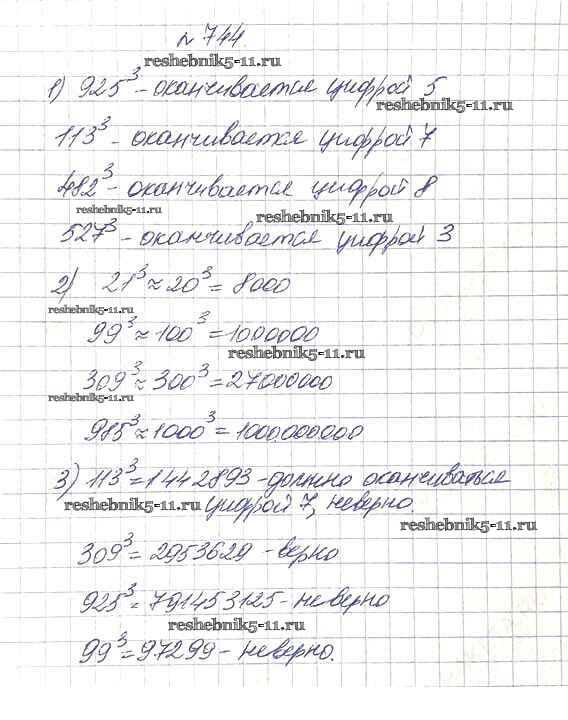 № 744.
reshebnik5-11.ru
1) 925³ - оканчивается цифрой 5
reshebnik5-11.ru
113³ - оканчивается цифрой 7
482³ - оканчивается цифрой 8
reshebnik5-11.ru reshebnik5-11.ru
527³ - оканчивается цифрой 3
2) 21³ ≈ 20³ = 8000
reshebnik5-11.ru
99³ ≈ 100³ = 1000000
reshebnik5-11.ru
309³ ≈ 300³ = 27000000
reshebnik5-11.ru
985³ ≈ 1000³ = 1000.000.000
3) 113³ = 1442893 - должно оканчиваться
reshebnik5-11.ru цифрой 7, неверно.
reshebnik5-11.ru
309³ = 2953629 - верно
925³ = 791453125 - неверно
reshebnik5-11.ru
99³ = 97299 - неверно.